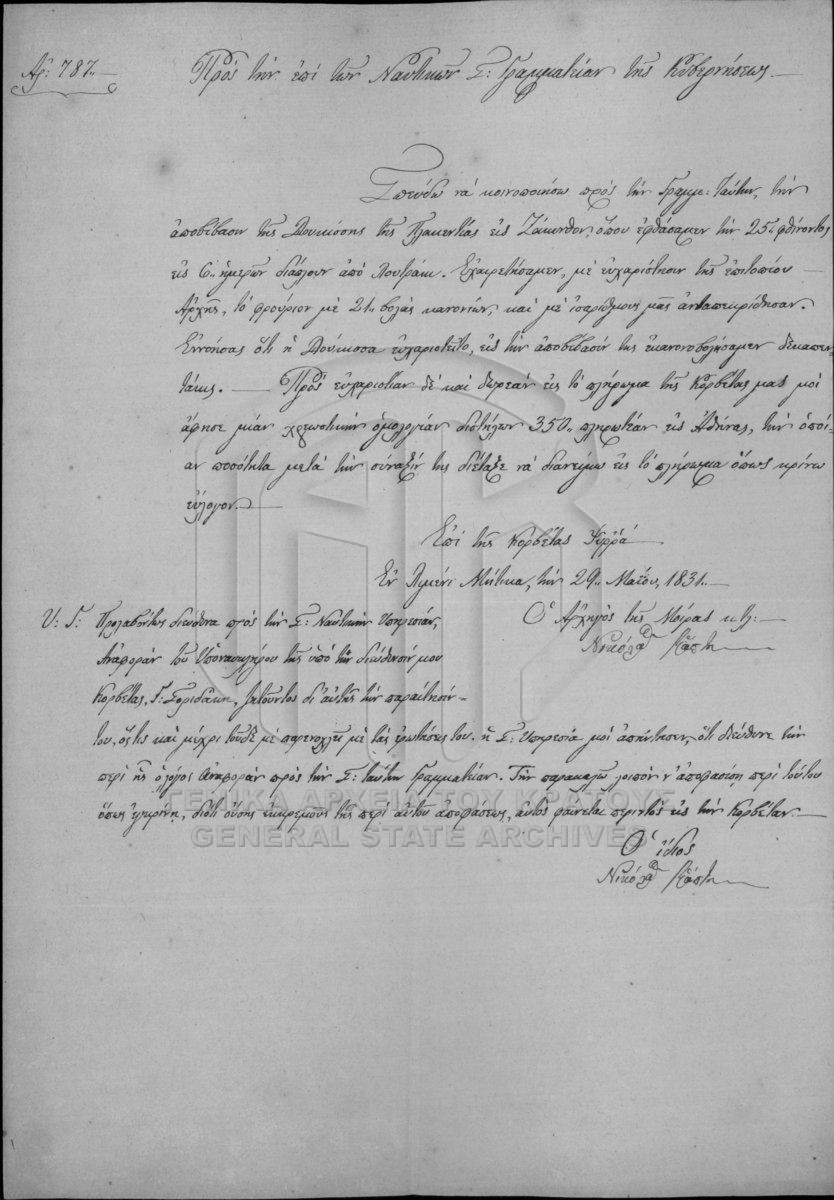 Αρ: 787.
Πρὸς τὴν ἐπὶ τῶν Ναυτικῶν Σ: Γραμματείαν τῆς Κυβερνήσεως
Σπεύδω νὰ κοινοποιήσω πρὸς τὴν Γραμμ: ταύτην, τὴν
ἀποβίβασιν τῆς Δουκίσσης τῆς Πλακεντίας εἰς Ζάκυνθον, ὅπου ἐφθάσαμεν τὴν 25ην φθίνοντος
εἰς 6. ἡμερῶν διάπλουν ἀπὸ Λουτράκι. Ἐχαιρετήσαμεν, μὲ εὐχαρίστησιν τῆς ἐπιτοπίου
Ἀρχῆς, τὸ φρούριον μὲ 21. βολὰς κανονίων, καὶ μὲ ἰσαρίθμους μᾶς ἀνταπεκρίθησαν.
Ἐννοήσας ὅτι ἡ Δούκισσα εὐχαριστεῖτο, εἰς τὴν ἀποβίβασίν της ἐκανονοβολήσαμεν δεκαπεν-
τάκις. Πρὸς εὐχαριστίαν δὲ καὶ δωρεὰν εἰς τὸ πλήρωμα τῆς Κορβέτας μας μοὶ
ἄφησε μίαν χρεωστικὴν ὁμολογίαν διστήλων 350. πληρωτέαν εἰς Ἀθήνας, τὴν ὁποί-
αν ποσότητα μετὰ τὴν σύναξίν της διέταξε νὰ διανείμω εἰς τὸ πλήρωμα ὅπως κρίνω
εὔλογον.
Ἐπὶ τῆς Κορβέτας
Ἐν Λιμένι Μύτικα, τὴν 29. Μαΐου, 1831.
Ὁ Ἀρχηγὸς τῆς Μοίρας κτλ:
Νικόλαος
Υ: Γ: Προλαβόντως διεύθυνα πρὸς τὴν Σ: Ναυτικὴν Ὑπηρεσίαν,
Ἀναφορὰν τοῦ Ὑποναυκλήρου τῆς ὑπὸ τὴν διεύθυνσίν μου
Κορβέτας, Γ: Σοριδάκη, ζητοῦντος δι' αὐτῆς τὴν παραίτησίν
του, ὅςτις καὶ μέχρι τοῦδε μὲ παρενοχλεῖ μὲ τὰς ἐρωτήσεις του. ἡ Σ: Ὑπηρεσία μοὶ ἀπήντησεν, ὅτι διεύθυνε τὴν
περὶ ἧς ὁ λόγος Ἀναφορὰν πρὸς τὴν Σ: ταύτην Γραμματείαν. Τὴν παρακαλῶ λοιπὸν ν' ἀποφασίσῃ περὶ τούτου
ὅπως ἐγκρίνῃ, διότι οὔσης ἐκκρεμοῦς τῆς περὶ αὐτοῦ ἀποφάσεως, αὐτὸς φαίνεται περιττὸς εἰς τὴν Κορβέταν.
Ὁ ἴδιος
Νικόλαος
ΓΕΝΙΚΑ ΑΡΧΕΙΑ ΤΟΥ ΚΡΑΤΟΥΣ
GENERAL STATE ARCHIVES